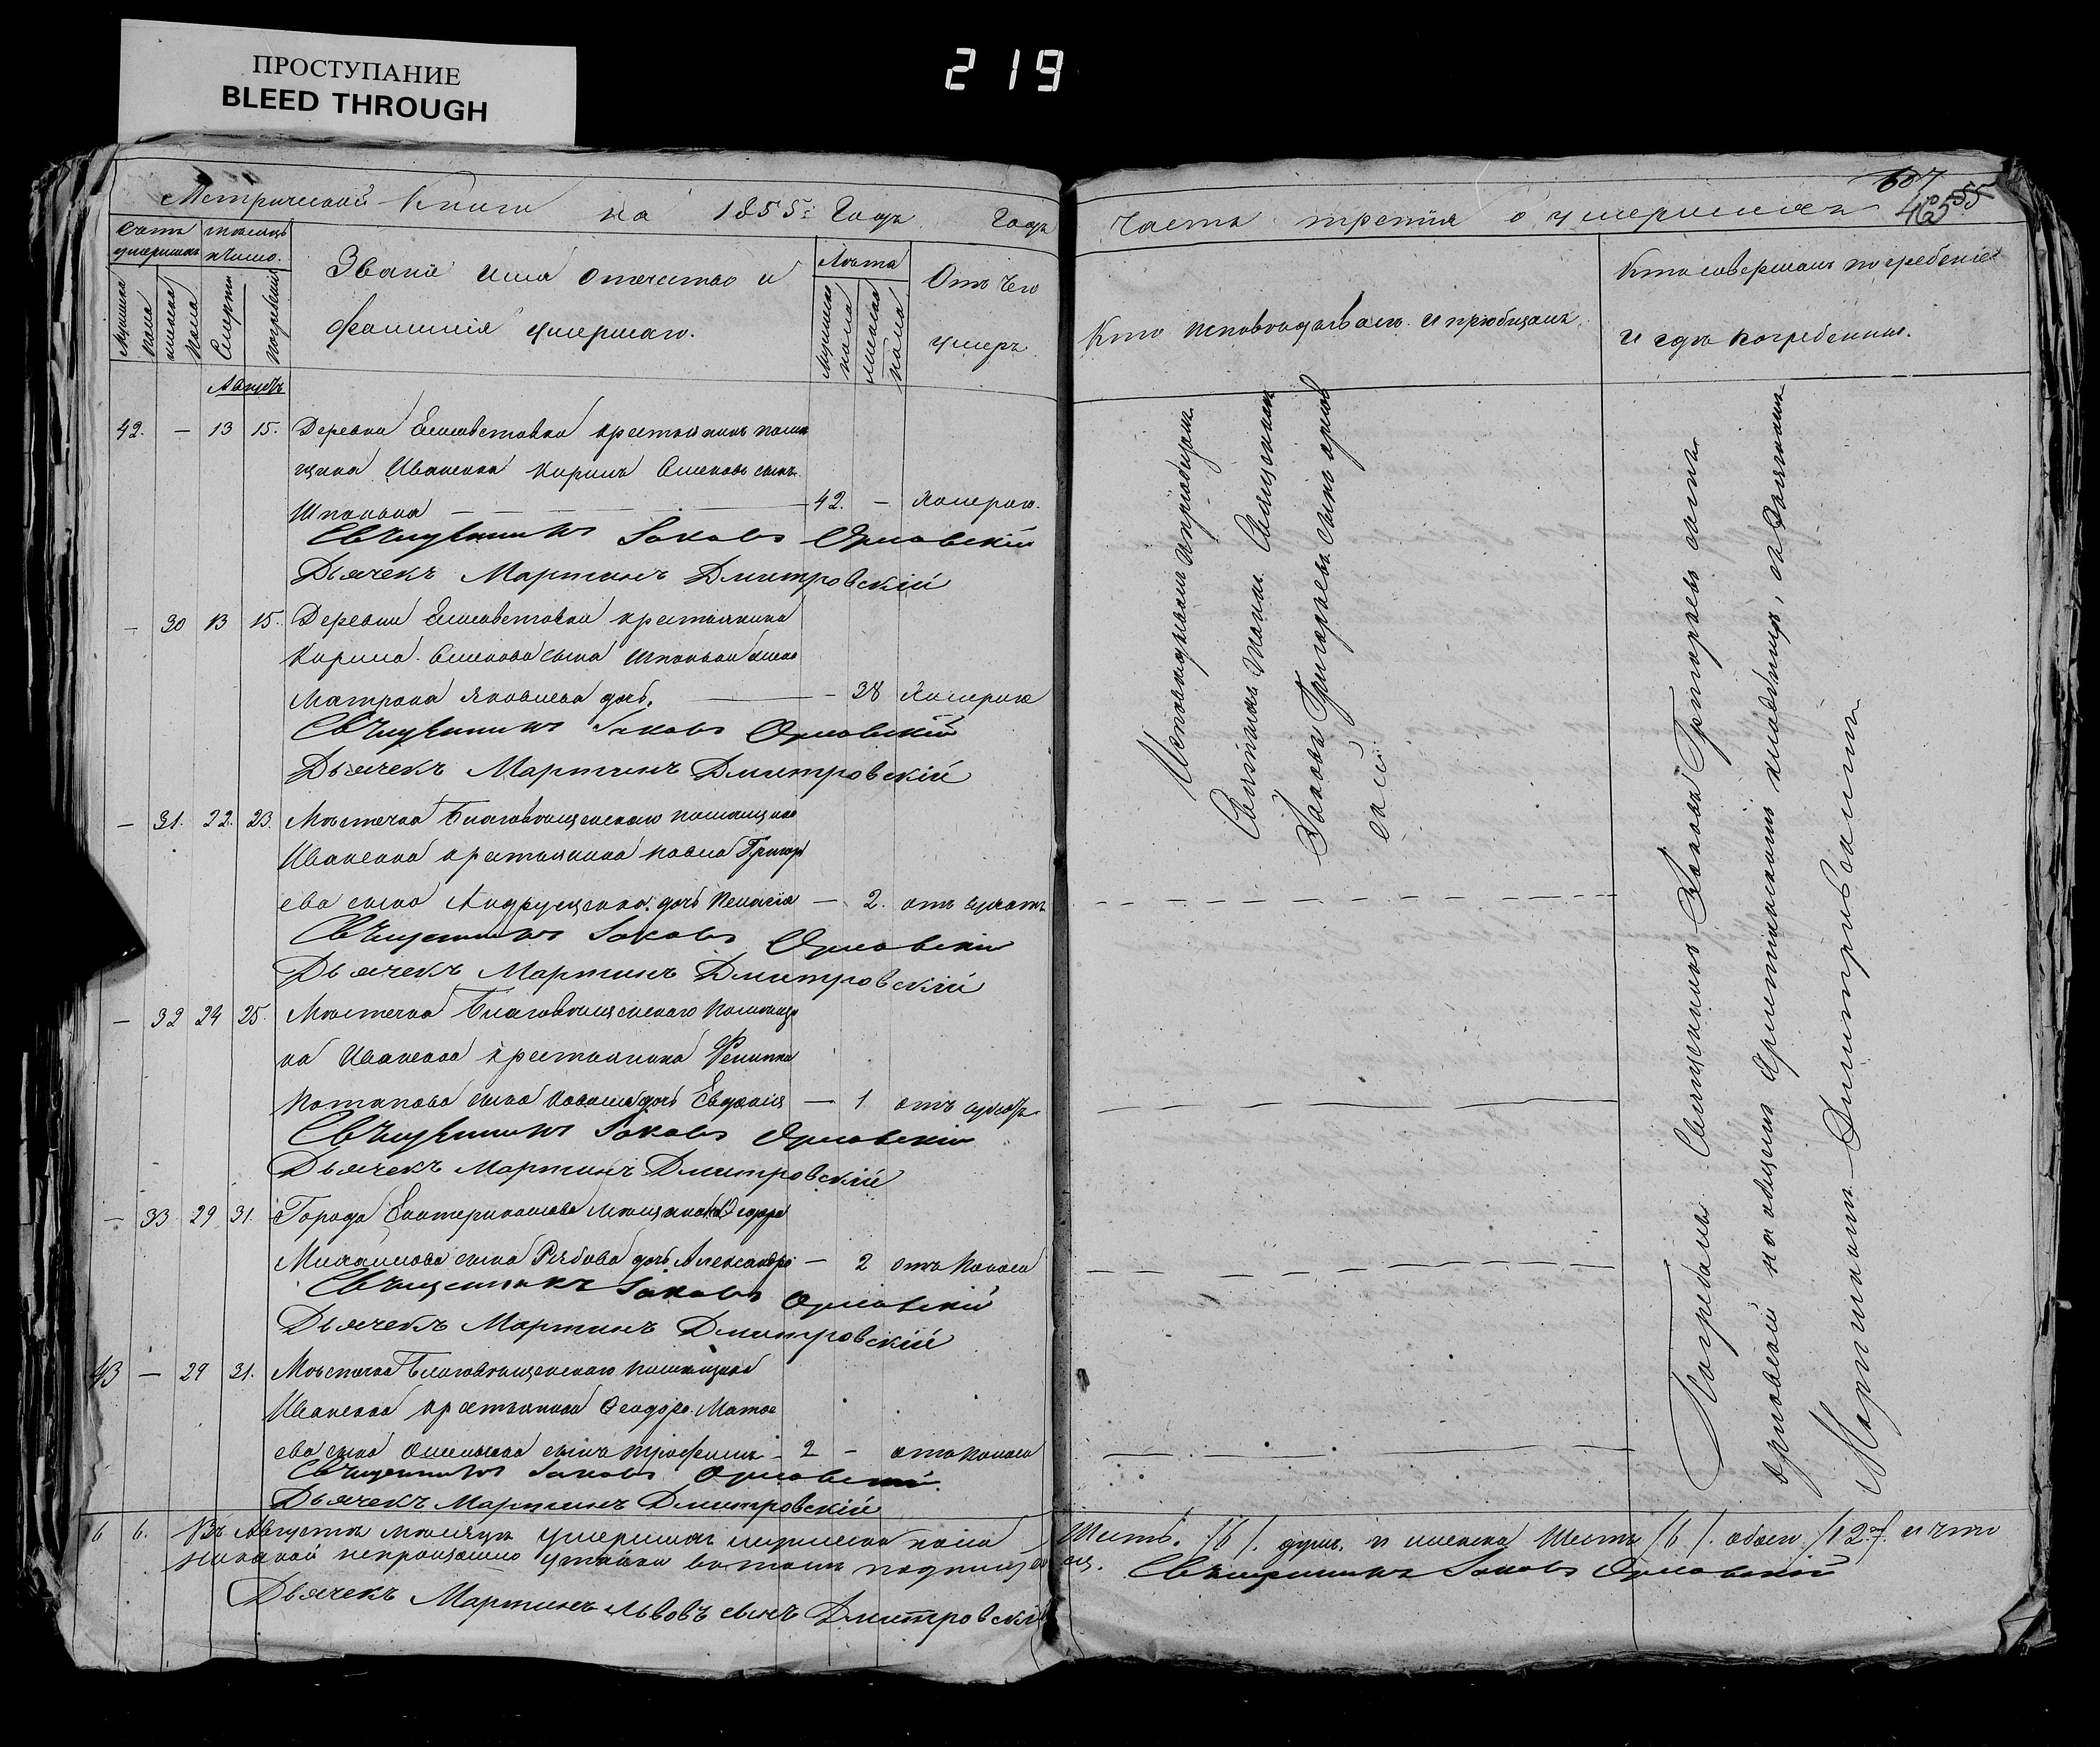 ПРОСТУПАНИЕ
BLEED THROUGH
219
Метрической Книги на 1855: Годъ Годъ
Счетъ умершихъ
Мѣсяцъ и число.
Мужеска пола
женска пола
Смерти
погребенія
Званіе имя отечество и
фамилія умершаго.
Лѣта
Мужеска пола
женска пола
Отъ чего
умеръ
Августъ
42. — 13 15. Деревни Елисаветовки крестьянинъ помѣ
щика Иваненка Кирилъ Семеновъ сынъ
Шпонька — 42. — Холерою.
Священникъ Іаковъ Орловскій
Дьячекъ Мартинъ Дмитровскій
— 30 13 15. Деревни Елисаветовки крестьянина
Кирила Семенова сына Шпоньки жена
Матрона Яковлева дочь. — 38 Холерою
Священникъ Іаковъ Орловскій
Дьячекъ Мартинъ Дмитровскій
— 31. 22. 23. Мѣстечка Благовѣщенскаго помѣщика
Иваненка крестьянина Павла Григорь
ева сына Андрущенка дочь Пелагія — 2. отъ
Священникъ Іаковъ Орловскій
Дьячекъ Мартинъ Дмитровскій
— 32 24 25. Мѣстечка Благовѣщенскаго Помѣщи
ка Иваненка крестьянина Филипа
Потапова сына дочь Евдокія — 1 отъ
Священникъ Іаковъ Орловскій
Дьячекъ Мартинъ Дмитровскій
— 33 29 31. Города Екатеринослава мѣщанина Ѳеодора
Михайлова сына Рябова дочь Александра — 2 отъ поноса
Священникъ Іаковъ Орловскій
Дьячекъ Мартинъ Дмитровскій
43 — 29 31. Мѣстечка Благовѣщенскаго помѣщика
Иваненка крестьянина Ѳеодора Матѳе
ева сына сынъ Трофимъ 2 — отъ поноса
Священникъ Іаковъ Орловскій
Дьячекъ Мартинъ Дмитровскій
6 6. Въ Августѣ мѣсяцѣ умершихъ мужеска пола
никакой непропущено въ томъ
Дьячекъ Мартинъ Львовъ сынъ Дмитровскій
607
465
55
Часть третія о умершихъ
Кто исповѣдывалъ и пріобщалъ.
Кто совершалъ погребеніе
и гдѣ погребенны.
Исповѣдывалъ и пріобщалъ
Святыхъ Таинъ Священникъ
Іаковъ Григорьевъ сынъ Орлов
скій
Погребалъ Священникъ Іаковъ Григорьевъ сынъ
Орловскій на общемъ Христіанскомъ кладбищѣ, съ Дьячкомъ
Мартиномъ Дмитровскимъ
Шесть /6/. душъ и женска Шесть /6/. обоего /12/. и что
Священникъ Іаковъ Орловскій